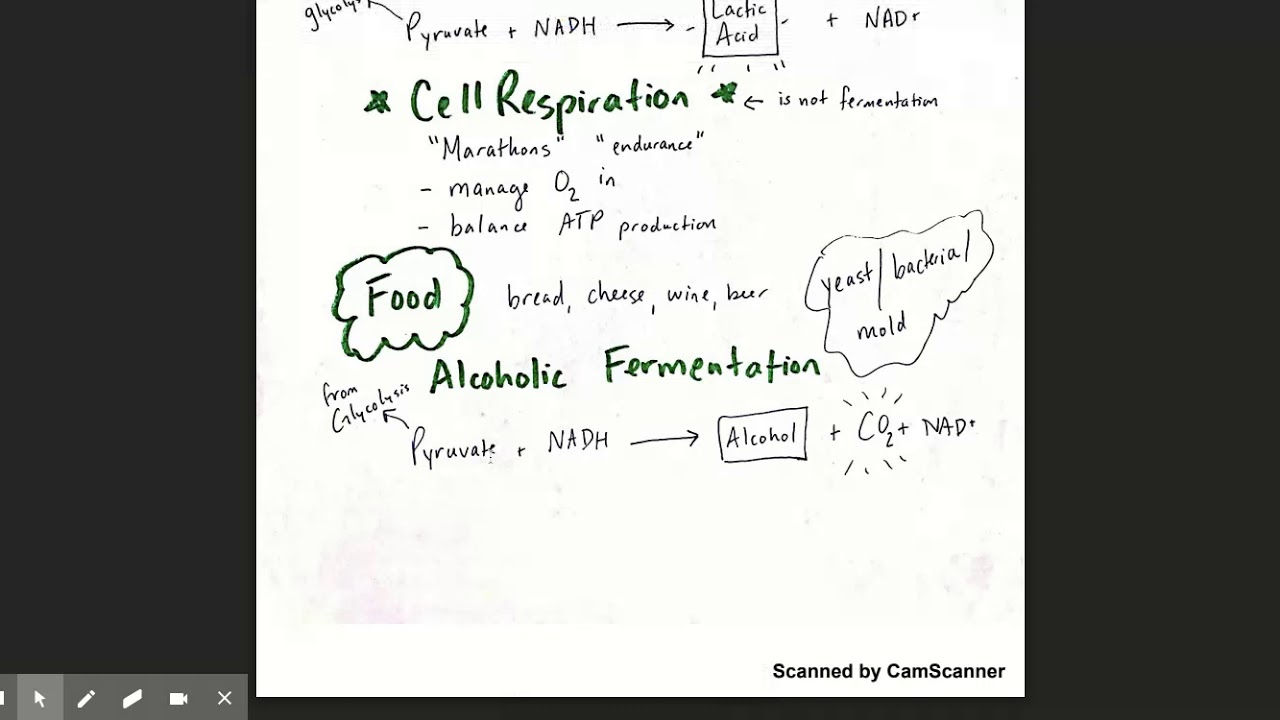 glycolysis
Pyruvate + NADH → - Lactic Acid - + NAD+
* Cell Respiration * ← is not fermentation
"Marathons" "endurance"
- manage O₂ in
- balance ATP production
Food bread, cheese, wine, beer
yeast/bacteria/
mold
Alcoholic Fermentation
from
Glycolysis
Pyruvate + NADH → Alcohol + CO₂ + NAD+
Scanned by CamScanner